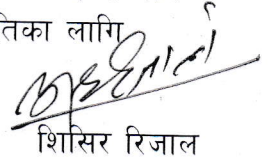 तिका लागि
शिसिर रिजाल